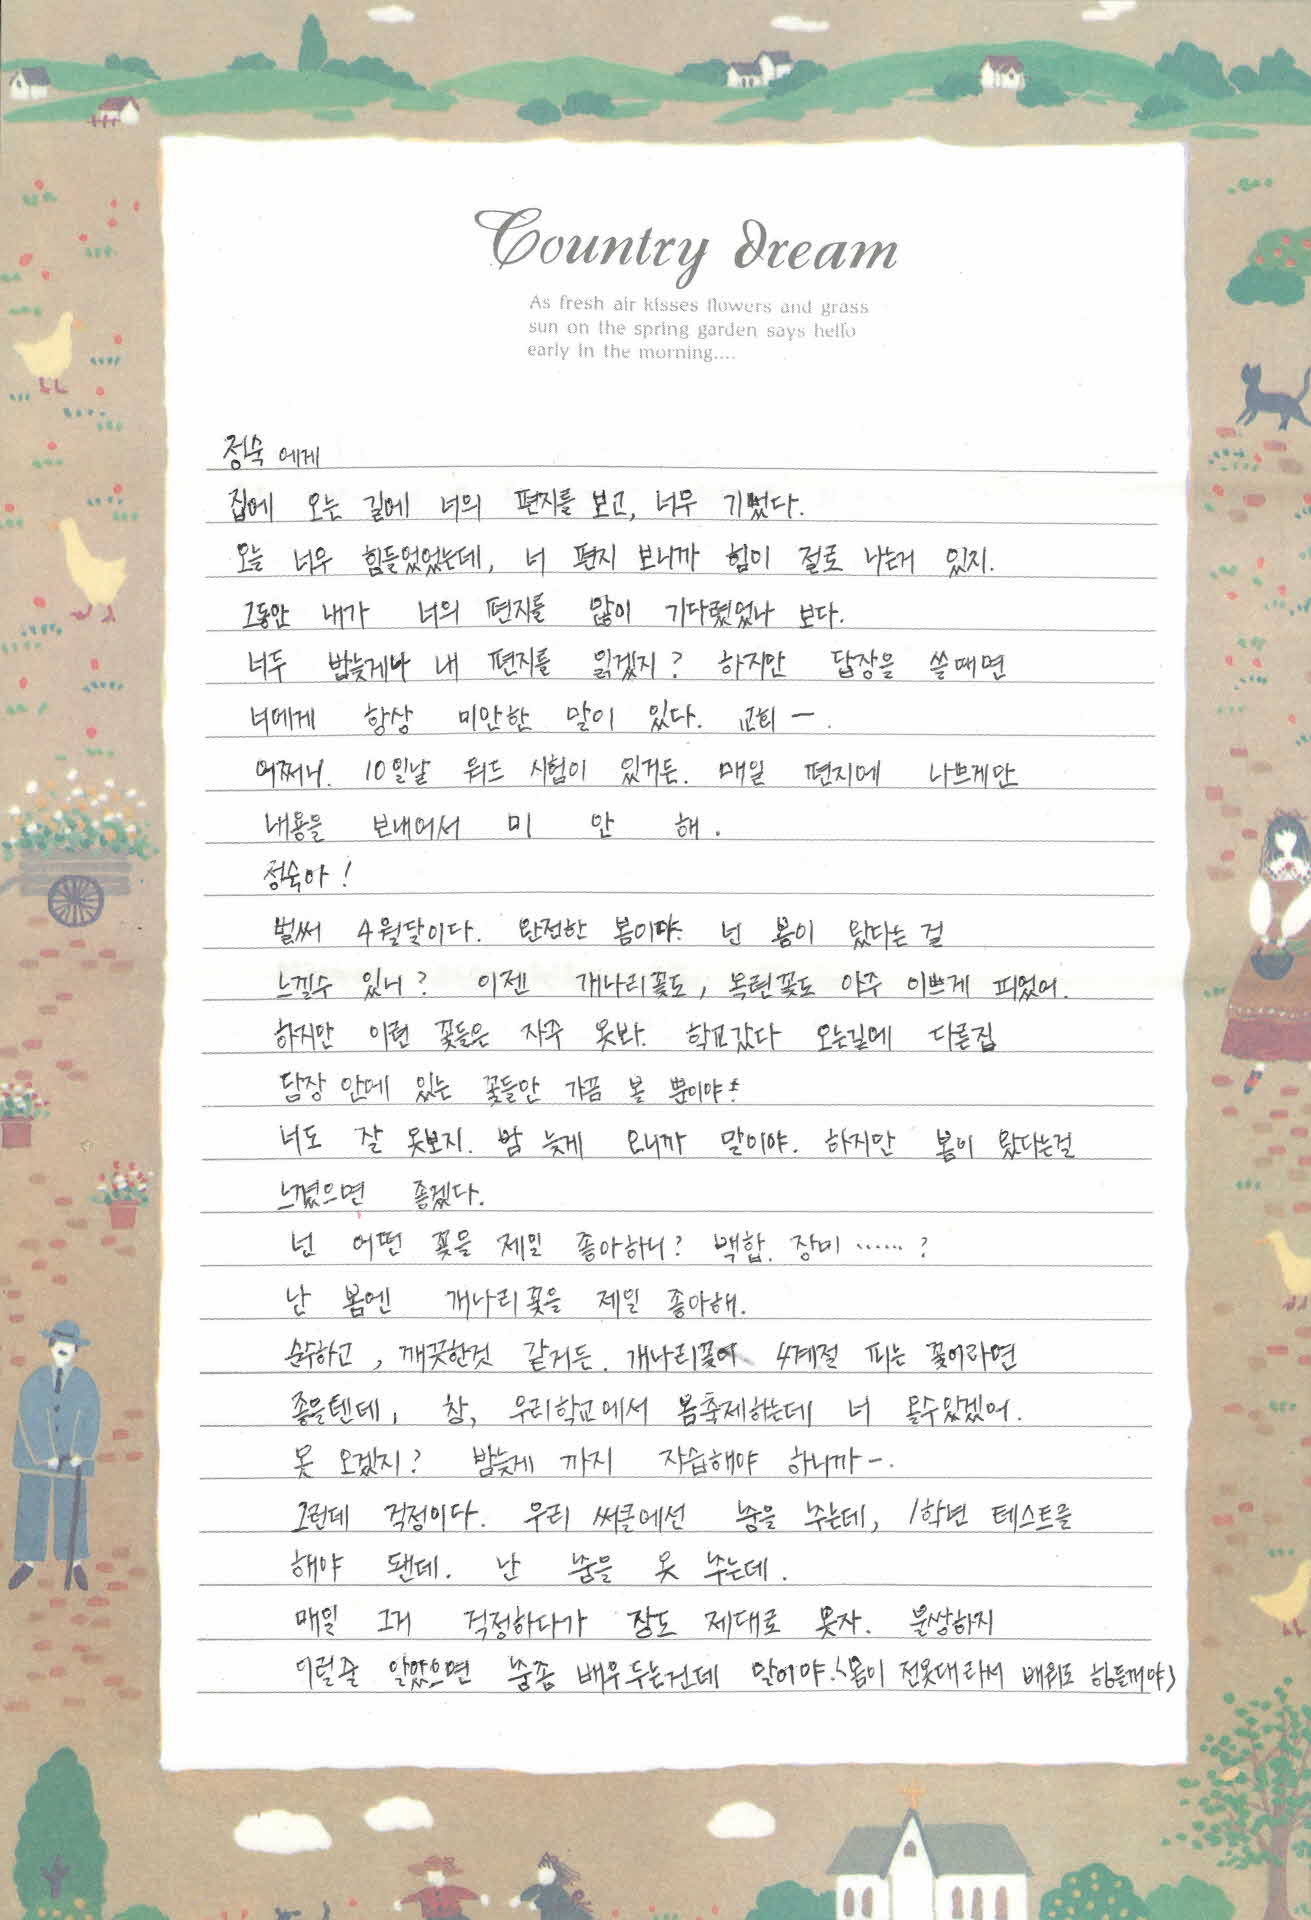 Country dream
As fresh air kisses flowers and grass
sun on the spring garden says hello
early in the morning....
정숙에게
집에 오는 길에 너의 편지를 보고, 너무 기뻤다.
오늘 너무 힘들었었는데, 너 편지 보니까 힘이 절로 나는거 있지.
그동안 내가 너의 편지를 많이 기다렸었나 보다.
너두 밤늦게나 내 편지를 읽겠지? 하지만 답장을 쓸때면
너에게 항상 미안한 말이 있다. 교회 ㅡ.
어쩌니. 10일날 워드 시험이 있거든. 매일 편지에 나쁘게만
내용을 보내어서 미 안 해.
정숙아!
벌써 4월달이다. 완전한 봄이야. 넌 봄이 왔다는 걸
느낄수 있니? 이젠 개나리꽃도, 목련꽃도 아주 이쁘게 피었어.
하지만 이런 꽃들은 자주 못봐. 학교갔다 오는길에 다른집
담장 안에 있는 꽃들만 가끔 볼 뿐이야.
너도 잘 못보지. 밤 늦게 오니까 말이야. 하지만 봄이 왔다는걸
느꼈으면 좋겠다.
넌 어떤 꽃을 제일 좋아하니? 백합. 장미 ……?
난 봄엔 개나리꽃을 제일 좋아해.
순수하고, 깨끗한것 같거든. 개나리꽃이 4계절 피는 꽃이라면
좋을텐데, 참, 우리학교에서 봄축제하는데 너 올수있겠어.
못 오겠지? 밤늦게 까지 자습해야 하니까ㅡ.
그런데 걱정이다. 우리 써클에선 춤을 추는데, 1학년 테스트를
해야 됀데. 난 춤을 못 추는데.
매일 그거 걱정하다가 잠도 제대로 못자. 불쌍하지
이럴줄 알았으면 춤좀 배우두는건데 말이야.<몸이 전봇대라서 배워도 힘들꺼야>